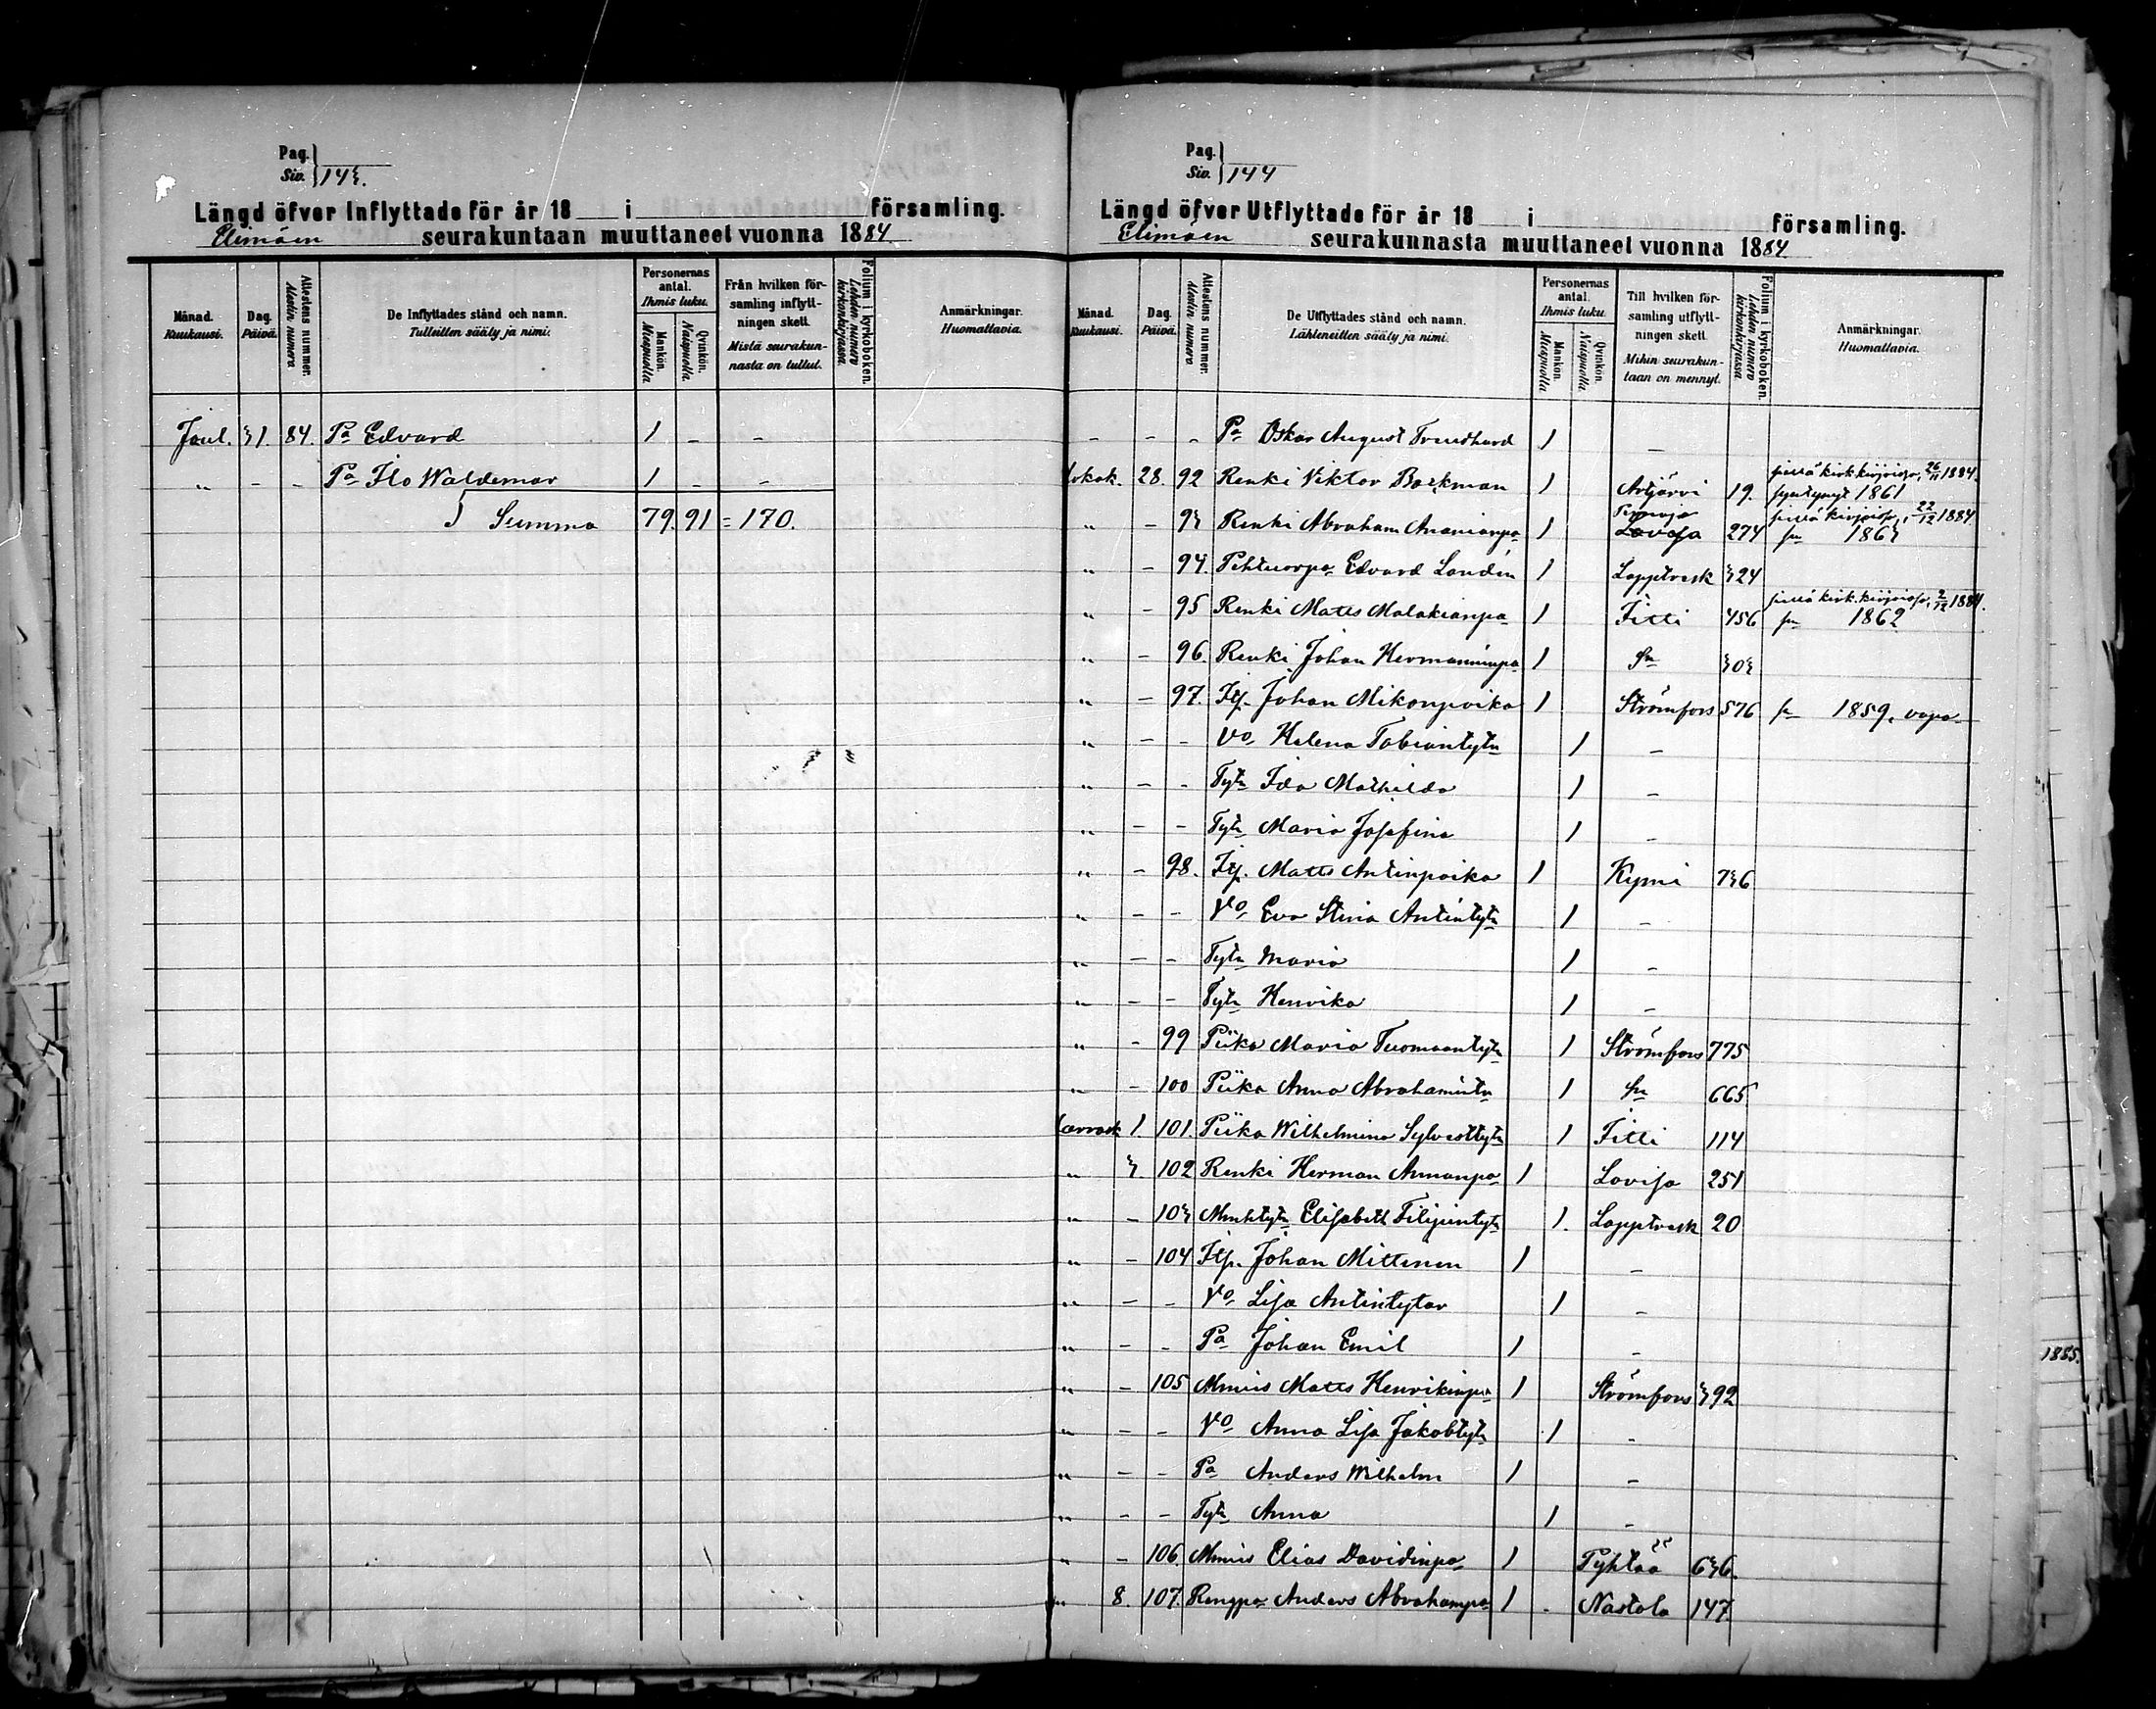 Pag.
Siv. 143.
Längd öfver Inflyttade för år 18 i församling.
Elimäen seurakuntaan muuttaneet vuonna 1884
Månad. Kuukausi. Dag. Päivä. Attestens nummer. Alestin numero De Inflyttades stånd och namn. Tulleitten sääly ja nimi. Personernas antal. Ihmis luku. Mankön. Miespuolia Qvinkön. Naispuolia. Från hvilken församling inflyttningen skett. Mistä seurakunnasta on tullut. Folium i kyrkoboken. Lehden numero kirkonkirjassa. Anmärkningar. Huomattavia.
Joul. 31. 84. Pa Edvard 1 - -
„ - - Pa Ilo Waldemar 1 - -
Summa 79. 91 = 170.
Pag.
Siv. 144
Längd öfver Utflyttade för år 18 i församling.
Elimäen seurakunnasta muuttaneet vuonna 1884
Månad. Kuukausi. Dag. Päivä. Attestens nummer. Alestin numero De Utflyttades stånd och namn. Lähteneitten sääly ja nimi. Personernas antal. Ihmis luku. Mankön. Miespuolia Qvinkön. Naispuolia. Till hvilken församling utflyttningen skett. Mihin seurakuntaan on mennyt. Folium i kyrkoboken. Lehden numero kirkonkirjassa Anmärkningar. Huomattavia.
- - - Pa Oskar August Trundhard 1 -
Lokak. 28. 92 Renki Viktor Backman 1 Artjärvi 19. 26/11 1884. syntynyt 1861
„ - 93 Renki Abraham Ananianpa 1 Pernaja Lovisa 274 22/12 1884 1863
„ - 94. Pehtuorpa Edvard Landén 1 Lapptresk 324
„ - 95 Renki Matts Malakianpa 1 Iitti 456 2/12 1884. 1862
„ - 96. Renki Johan Hermaninpa 1 sn 303
„ - 97. Itp. Johan Mikonpoika 1 Strömfors 576 1859, vapa
„ - - Vo Helena Tobiantytn 1 -
„ - - Tytr Ida Mathilda 1 -
„ - - Tytr Maria Josefina 1 -
„ - 98. Itp. Matts Antinpoika 1 Kymi 736
„ - - Vo Eva Stina Antintytr 1 -
„ - - Tytr Maria 1 -
„ - - Tytr Henrika 1 -
„ - 99 Piika Maria Tuomaantytr 1 Strömfors 775
„ - 100 Piika Anna Abrahamintr 1 sn 665
Marrask 1. 101. Piika Wilhelmina Sylvesttytr 1 Iitti 114
„ 3. 102 Renki Herman Annanpa 1 Lovisa 251
„ - 103 Elisabeth Filipintytr 1. Lapptresk 20
„ - 104 Itp. Johan Mittinen 1 -
„ - - Vo Lisa Antintytar 1 -
„ - - Pa Johan Emil 1 -
„ - 105 Matts Henrikinpa 1 Strömfors 392
„ - - Vo Anna Lisa Jakobtytr 1 -
„ - - Pa Anders Wilhelm 1 -
„ - - Tytr Anna 1 -
„ - 106. Elias Davidinpa 1 Pyhtää 636.
„ 8. 107. Rengpa Anders Abrahampa 1 - Nastola 147
1885.